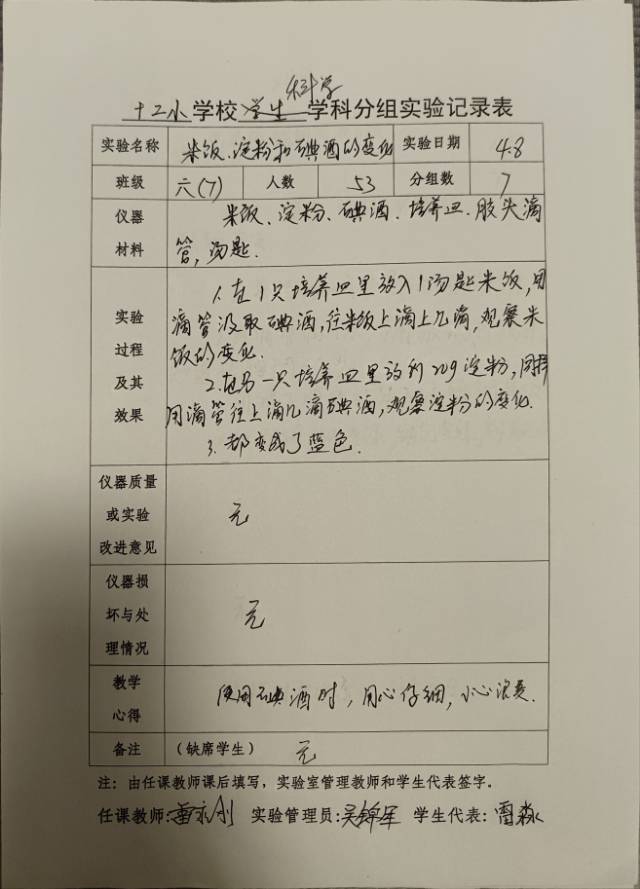 科学
十二小学校学生学科分组实验记录表
实验名称 米饭、淀粉和碘酒的变化 实验日期 4.8
班级 六(7) 人数 53 分组数 7
仪器材料 米饭、淀粉、碘酒、培养皿、胶头滴
管,汤匙.
实验过程及其效果 1.在1只培养皿里放入1汤匙米饭,用
滴管汲取碘酒,往米饭上滴上几滴,观察米
饭的变化.
2.在另一只培养皿里放约20g淀粉,同样
用滴管往上滴几滴碘酒,观察淀粉的变化.
3.都变成了蓝色.
仪器质量或实验改进意见 无
仪器损坏与处理情况 无
教学心得 使用碘酒时,用心仔细,小心
备注 (缺席学生) 无
注:由任课教师课后填写,实验室管理教师和学生代表签字。
任课教师: 实验管理员:吴锦军 学生代表:雷淼